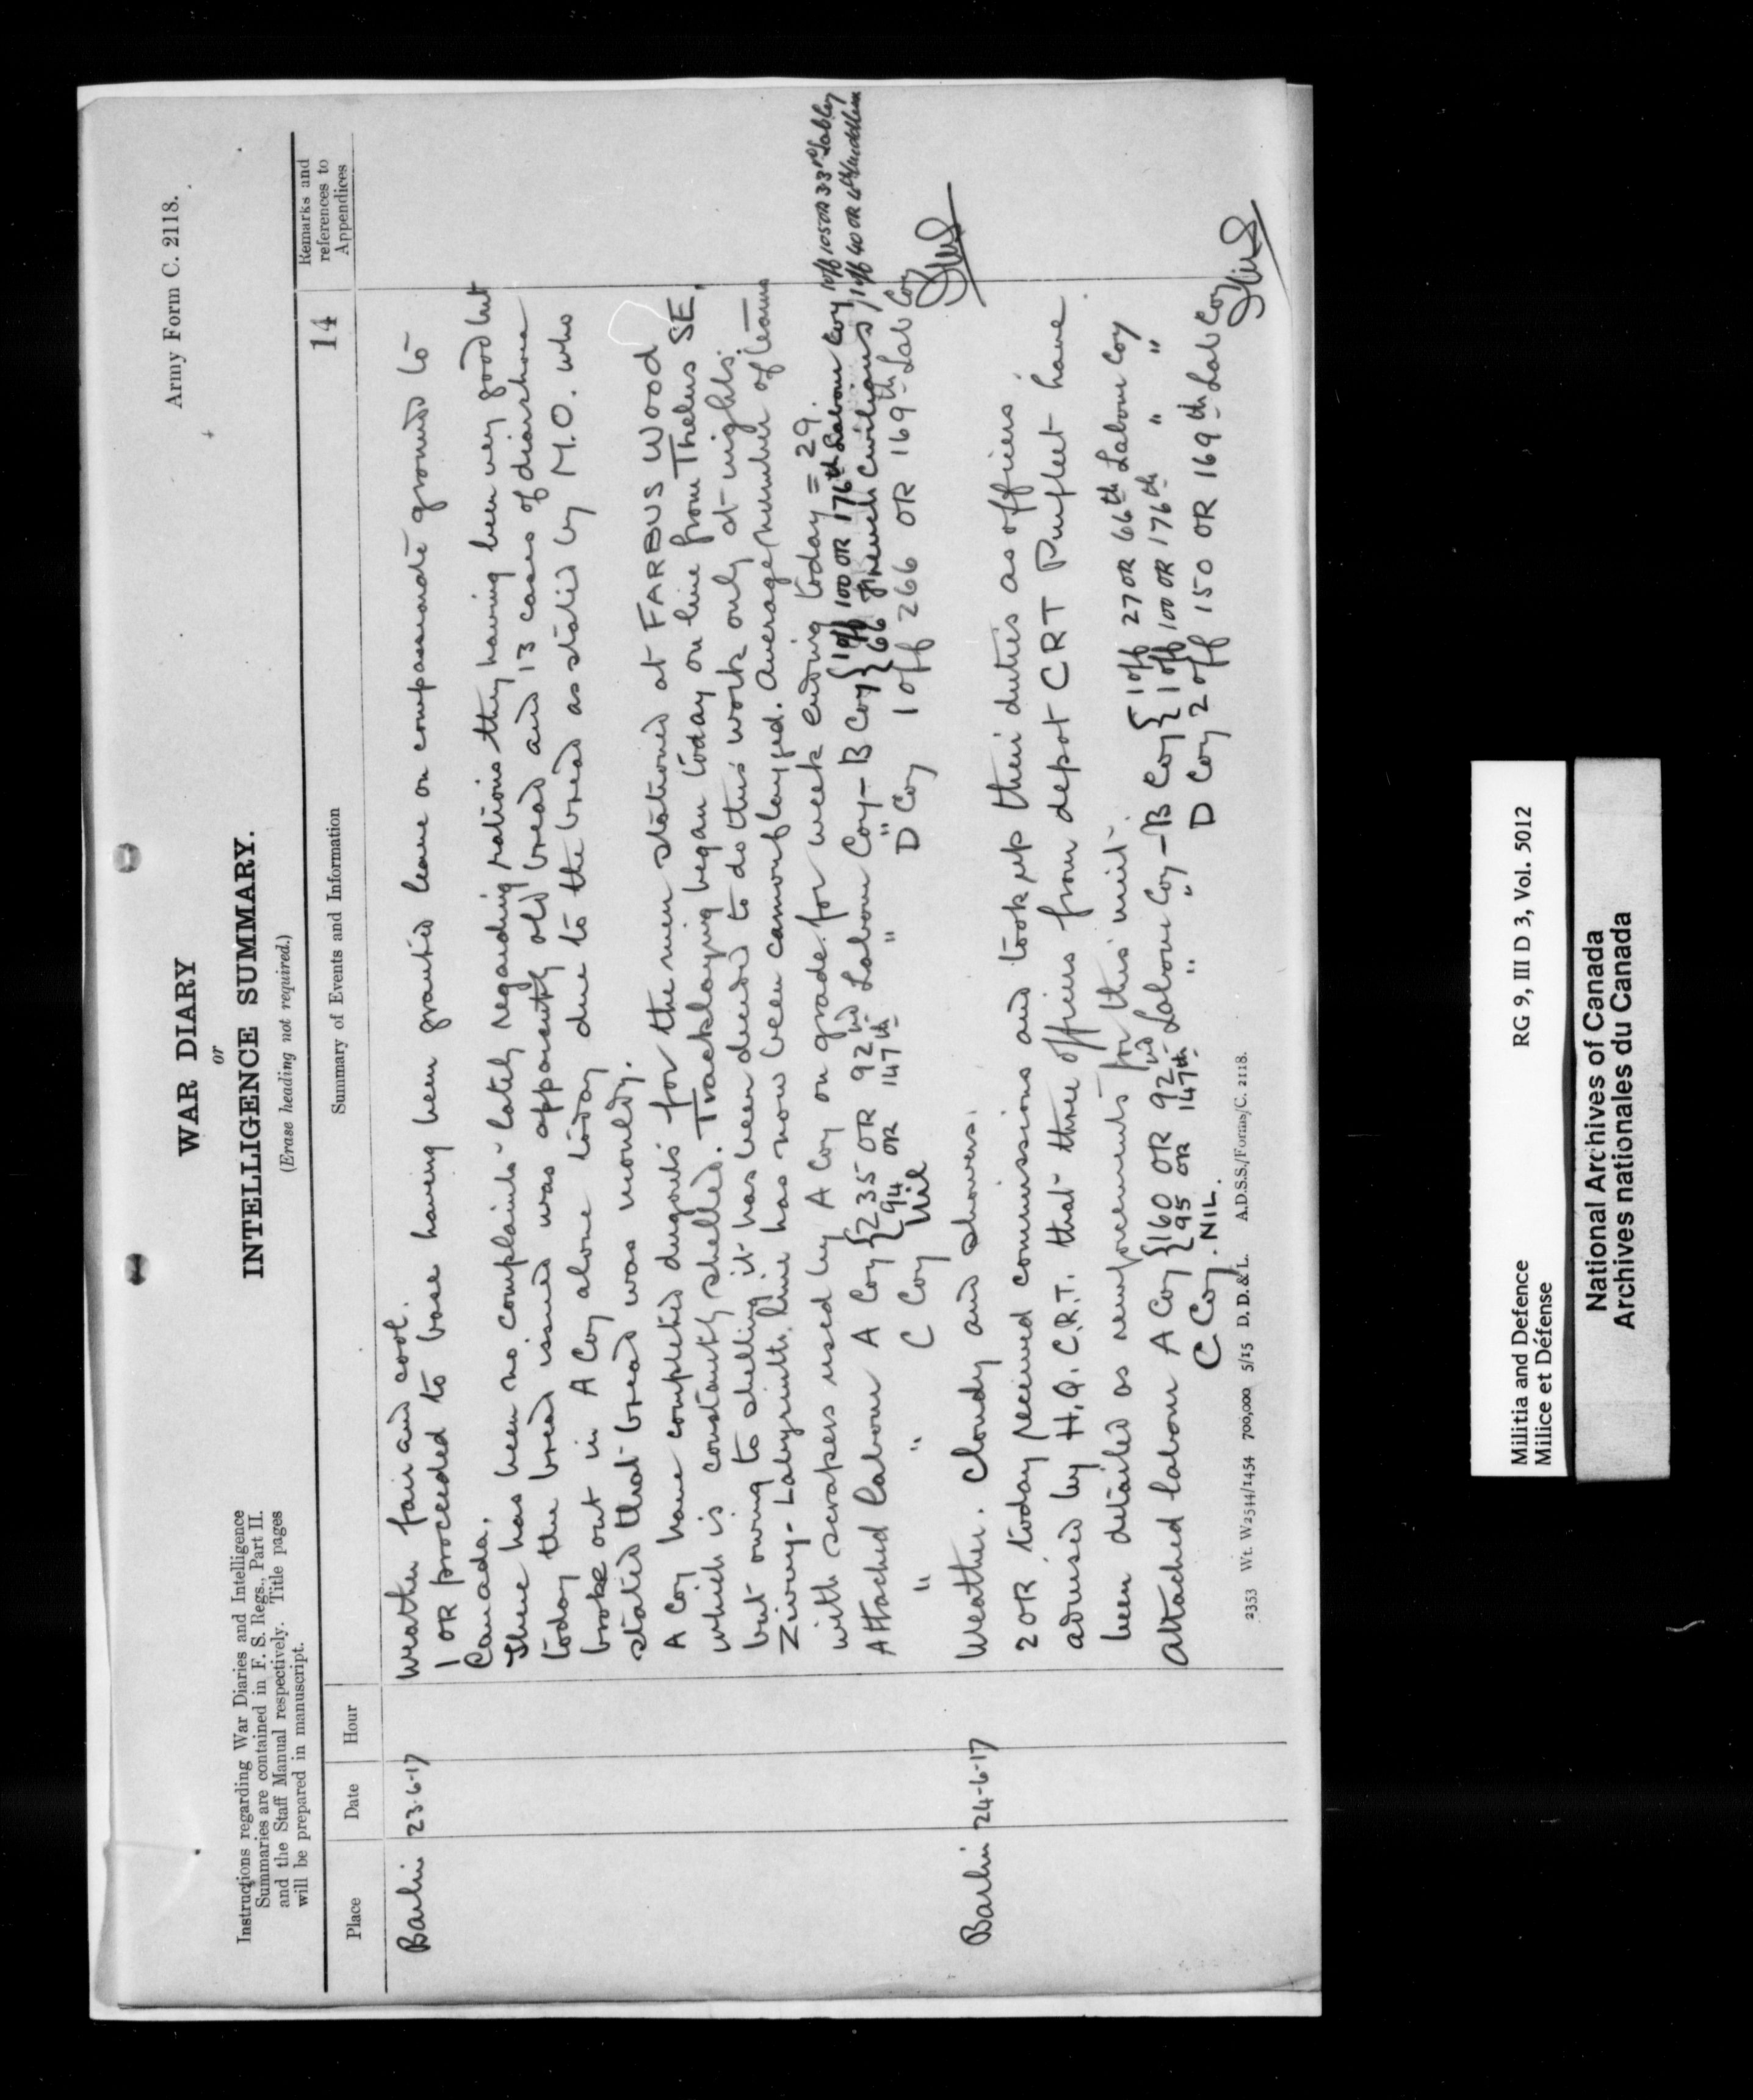 Army Form C. 2118.
WAR DIARY
or
INTELLIGENCE SUMMARY.
(Erase heading not required.)
Instructions regarding War Diaries and Intelligence
Summaries are contained in F. S. Regs., Part II.
and the Staff Manual respectively. Title pages
will be prepared in manuscript.
14
Place Date Hour Summary of Events and Information Remarks and references to Appendices
Barlin 23-6-17 Weather fair and cool.
1 OR proceeded to base having been granted leave on compassionate grounds to
Canada.
There has been no complaints lately regarding rations they having been very good but
today the bread issued was apparently old bread and 13 cases of diarrhoea
broke out in A Coy alone today due to the bread as stated by M.O. who
stated that bread was mouldy.
A Coy have completed dugouts for the men stationed at FARBUS WOOD
which is constantly shelled. Tracklaying began today on line from Thelus SE,
but owing to shelling it has been decided to do this work only at nights.
Zivery-Labyrinth line has now been camouflaged. Average number of teams
with scrapers used by A Coy on grade for week ending today = 29.
Attached labour A Coy { 235 OR 92nd Labour Coy - B Coy { 1 off 100 OR 176th Labour Coy 1 off 105 OR 33rd Lab Coy
94 OR 147th " " 66 French Civilians / 1 off 40 OR 6th Middlesex
" " C Coy Nil D Coy 1 off 266 OR 169th Lab Coy
Barlin 24-6-17 Weather. Cloudy and showers.
2 OR today received commissions and took up their duties as officers.
advised by H.Q. C.R.T. that three officers from depot CRT Purfleet have
been detailed as reinforcements for this unit.
Attached labour A Coy { 160 OR 92nd Labour Coy - B Coy { 1 off 27 OR 66th Labour Coy
95 OR 147th " " 1 off 100 OR 176th " "
C Coy. NIL. D Coy 2 off 150 OR 169th Lab Coy
2353 Wt. W2544/1454 700,000 5/15 D. D. & L. A.D.S.S./Forms/C. 2118.
Militia and Defence RG 9, III D 3, Vol. 5012
Milice et Défense
National Archives of Canada
Archives nationales du Canada